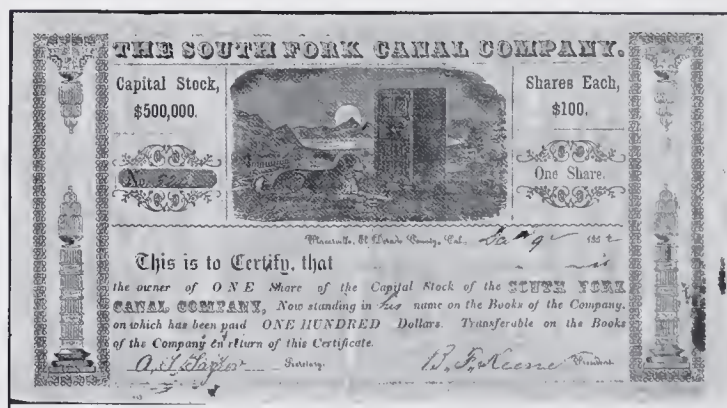 THE SOUTH FORK CANAL COMPANY.
Capital Stock,
$500,000.
Shares Each,
$100.
No.
One Share.
Placerville, El Dorado County, Cal., 185
This is to Certify, that is
the owner of ONE Share of the Capital Stock of the SOUTH FORK
CANAL COMPANY, Now standing in his name on the Books of the Company,
on which has been paid ONE HUNDRED Dollars. Transferable on the Books
of the Company on return of this Certificate.
A. T. Taylor Secretary. B. F. Keene President.